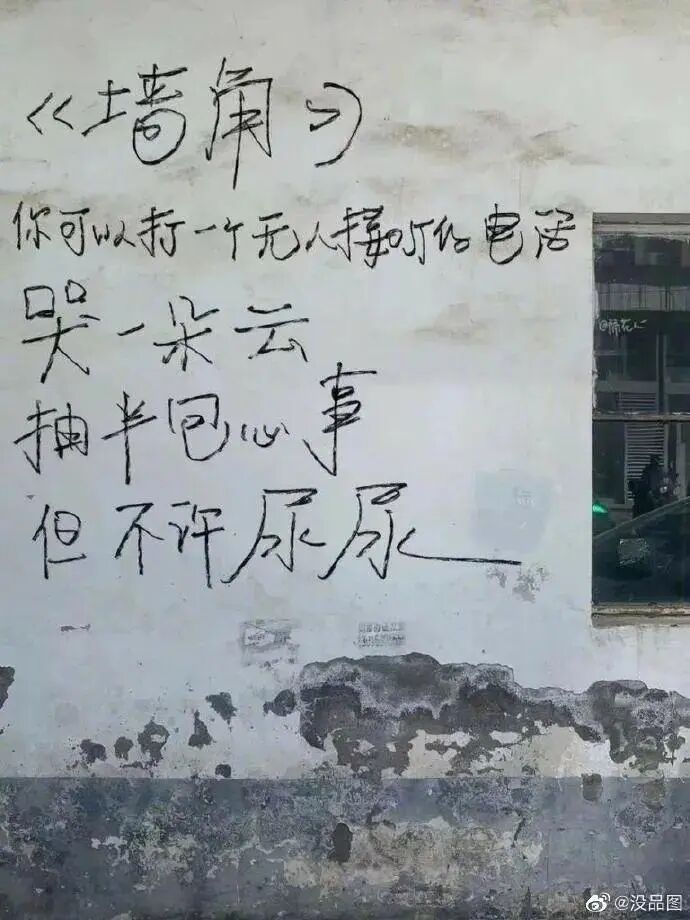 《墙角》
你可以打一个无人接听的电话
哭一朵云
抽半包心事
但不许尿尿
@没品图